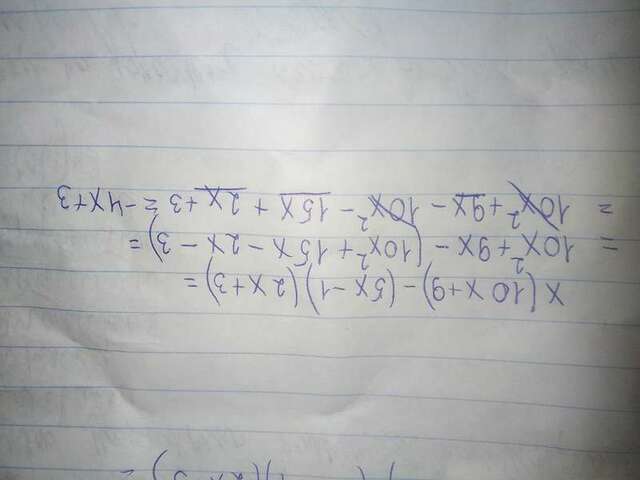 x(10x+9)-(5x-1)(2x+3)=
= 10x²+9x-(10x²+15x-2x-3)=
= 10x²+9x-10x²-15x+2x+3=-4x+3